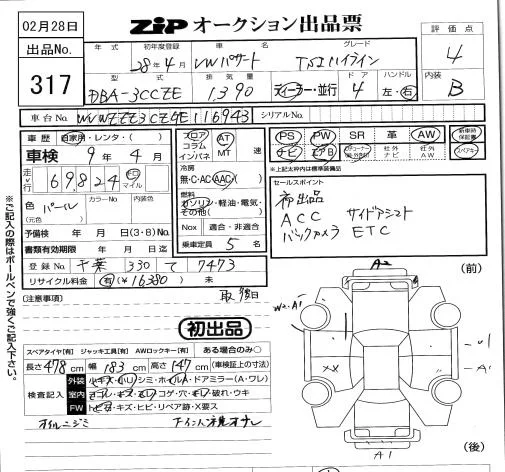 02月28日
ZIP オークション出品票
評価点
4
内装
B
出品No.
317
年式 初年度登録 車名 グレード
28年4月 VWパサート TSIハイライン
型式 排気量 ドア ハンドル
DBA-3CCZE 1,390 ディーラー・並行 4 左・右
車台No. WVWZZZ3CZGE116943 シリアルNo.
車歴 自家用・レンタ・( )
車検 9年4月
走行 69,824 km マイル
色 (元色) パール カラーNo. 内装色
予備検 年 月 日(3・8)No.
書類有効期限 年 月 日迄
登録No. 千葉 330 て 7473
リサイクル料金 有(¥16,380) 未
フロア コラム インパネ AT MT 速
冷房 無・C・AC・AAC
燃料 ガソリン・軽油・電気・その他( )
Nox 適合・非適合
乗車定員 5名
PS PW SR 革 AW 新車時保証書
ナビ エアB TVチューナー 社外ナビ 社外AW スペアキー
※上記太枠内は標準装備品
セールスポイント
初出品
ACC サイドアシスト
バックカメラ ETC
(注意事項)
初出品
スペアタイヤ[有] ジャッキ工具[有] AWロックキー[有] ある場合のみ〇
長さ478cm 幅183cm 高さ147cm (車検証上の寸法)
検査記入
外装 小キズ・小凹・シミ・ホイルA・ドアミラー(A・ワレ)
室内 ヨゴレ・キズ・スレ・コゲ・穴・ハガレ・破れ・ウキ
FW トビ石・キズ・ヒビ・リペア跡・X要ス
オイルニジミ
(前)
A2
W2・A1
XX
U1
A1
A1
(後)
※ご記入の際はボールペンで強くご記入下さい。